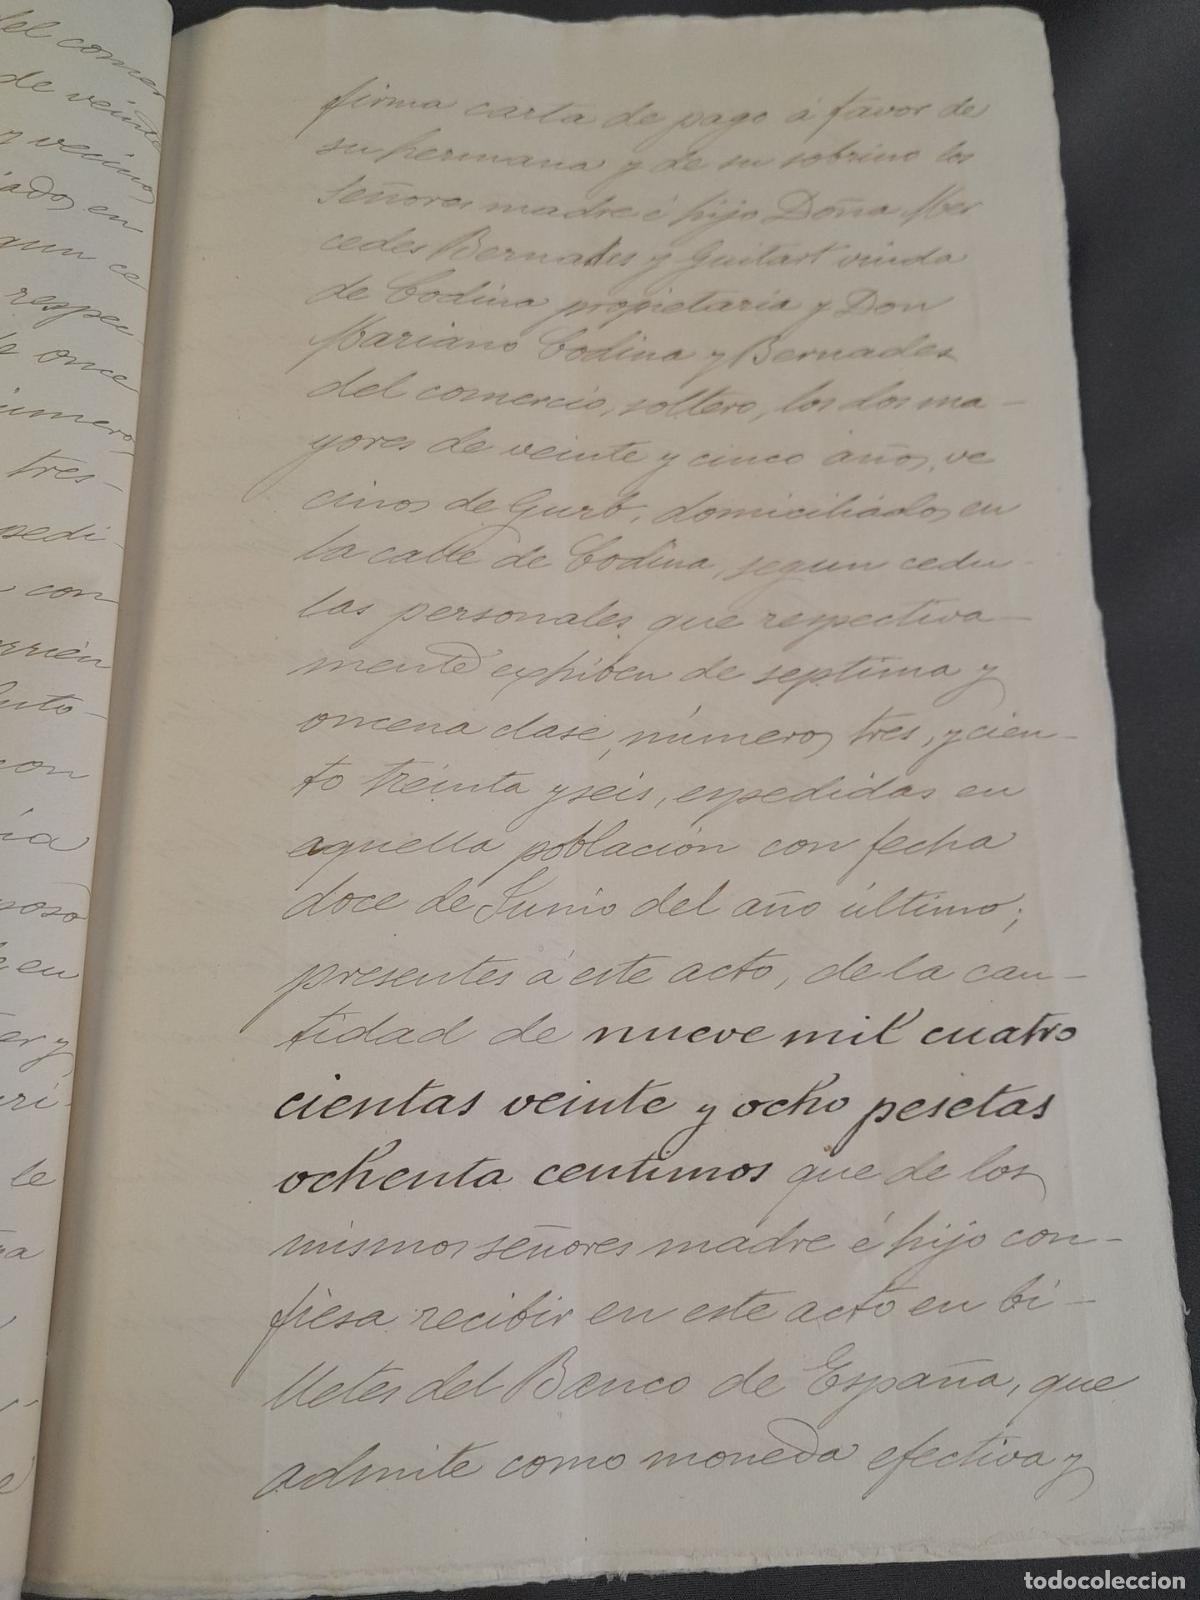 del comer
de veinte
y vecino,
iado, en
gun ce
respec
de once
úmero,
tres-
pedi-
con
rrien
uto-
con
ia
poso
en
er y
ri-
le
na
firma carta de pago á favor de
su hermana y de su sobrino los
Señores madre é hijo Doña Mer
cedes Bernades y Guitart viuda
de Codina propietaria y Don
Mariano Codina y Bernades
del comercio, soltero, los dos ma-
yores de veinte y cinco años, ve
cinos de Gurb, domiciliados en
la calle de Codina, segun cedu-
las personales que respectiva-
mente exhiben de septima y
oncena clase, números tres, y cien-
to treinta y seis, espedidas en
aquella población con fecha
doce de Junio del año último;
presentes á este acto, de la can-
tidad de nueve mil cuatro
cientas veinte y ocho pesetas
ochenta centimos que de los
mismos señores madre é hijo con-
fiesa recibir en este acto en bi-
lletes del Banco de España, que
admite como moneda efectiva y
todocoleccion